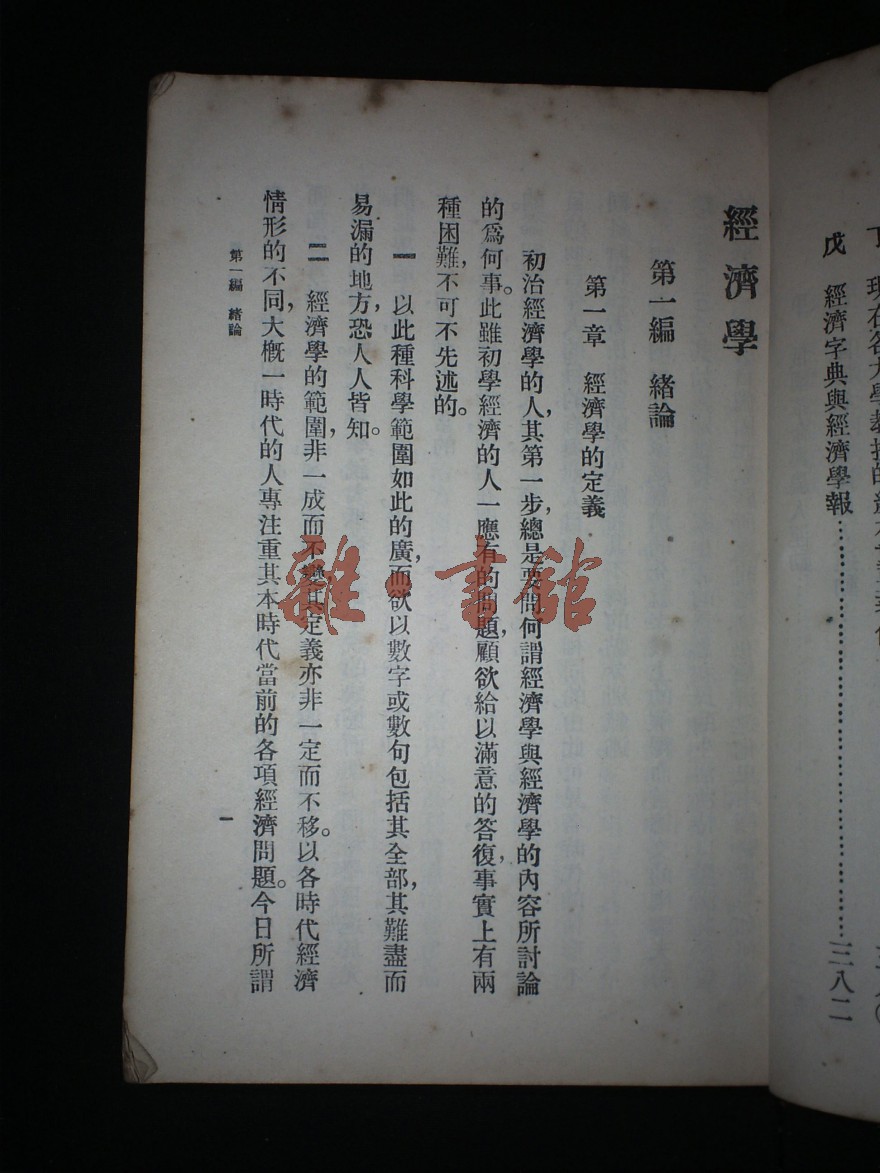 戊　經濟字典與經濟學報……………………三八二
經濟學
第一編　緒論
第一章　經濟學的定義
初治經濟學的人，其第一步，總是要問何謂經濟學與經濟學的內容所討論
的爲何事。此雖初學經濟的人一應有的問題，顧欲給以滿意的答復，事實上有兩
種困難，不可不先述的。
一　以此種科學範圍如此的廣，而欲以數字或數句包括其全部，其難盡而
易漏的地方，恐人人皆知。
二　經濟學的範圍，非一成而不變，其定義亦非一定而不移。以各時代經濟
情形的不同，大槪一時代的人專注重其本時代當前的各項經濟問題。今日所謂
第一編　緒論
一
雜·書館